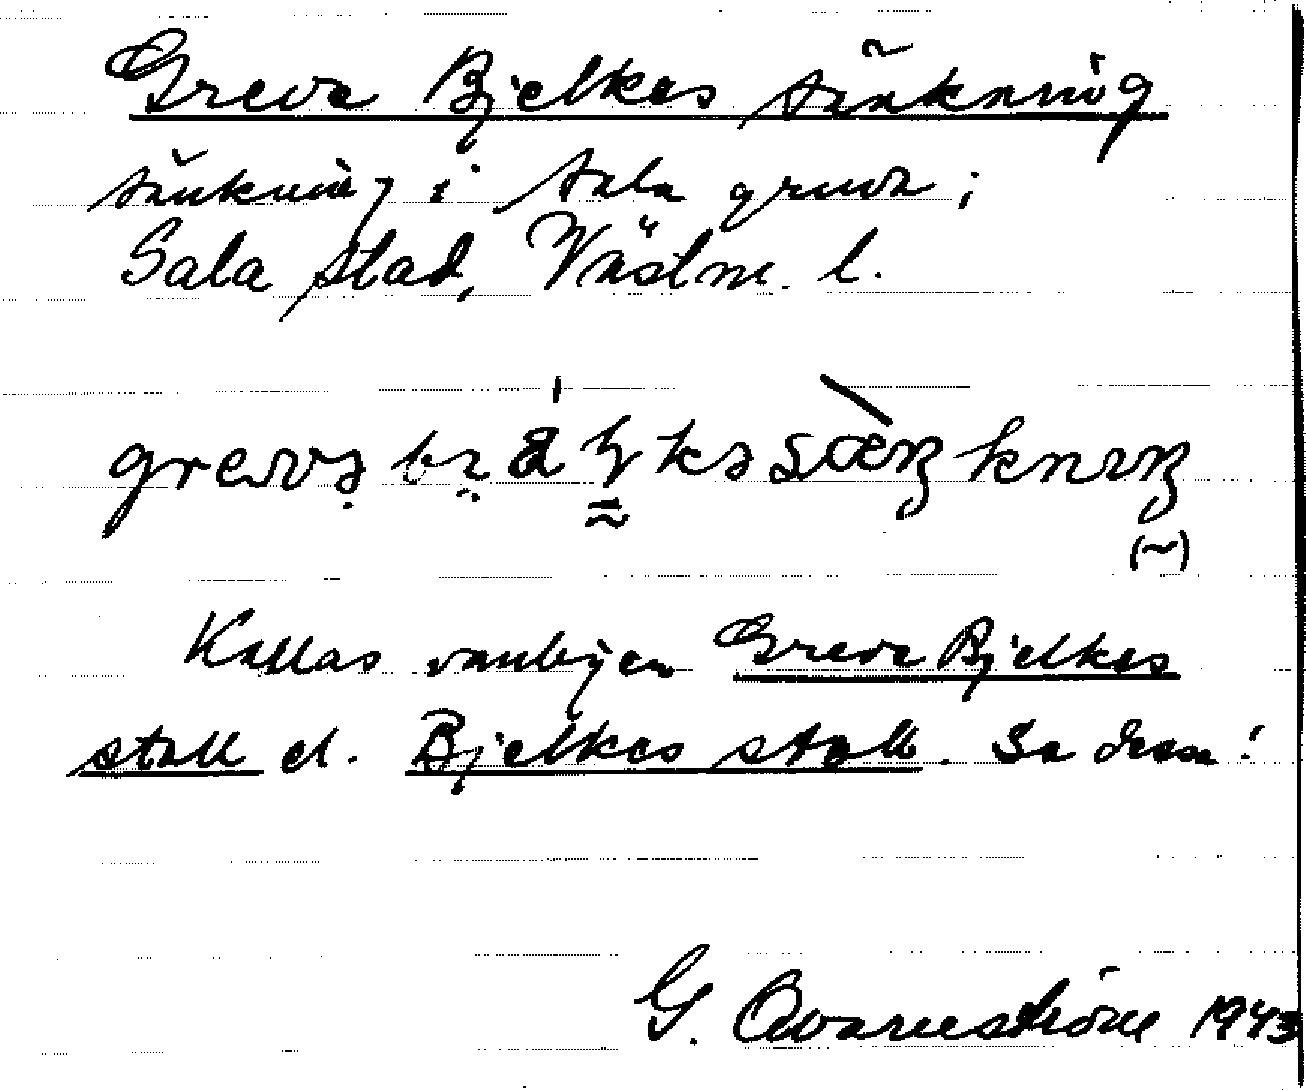 Greve Bjelkes sänkning
sänkning i Sala gruva;
Sala stad, Västm. l.
Kallas vanligen Greve Bjelkes
stall el. Bjelkes stall. Se dessa!
G. Qvarnström 1943